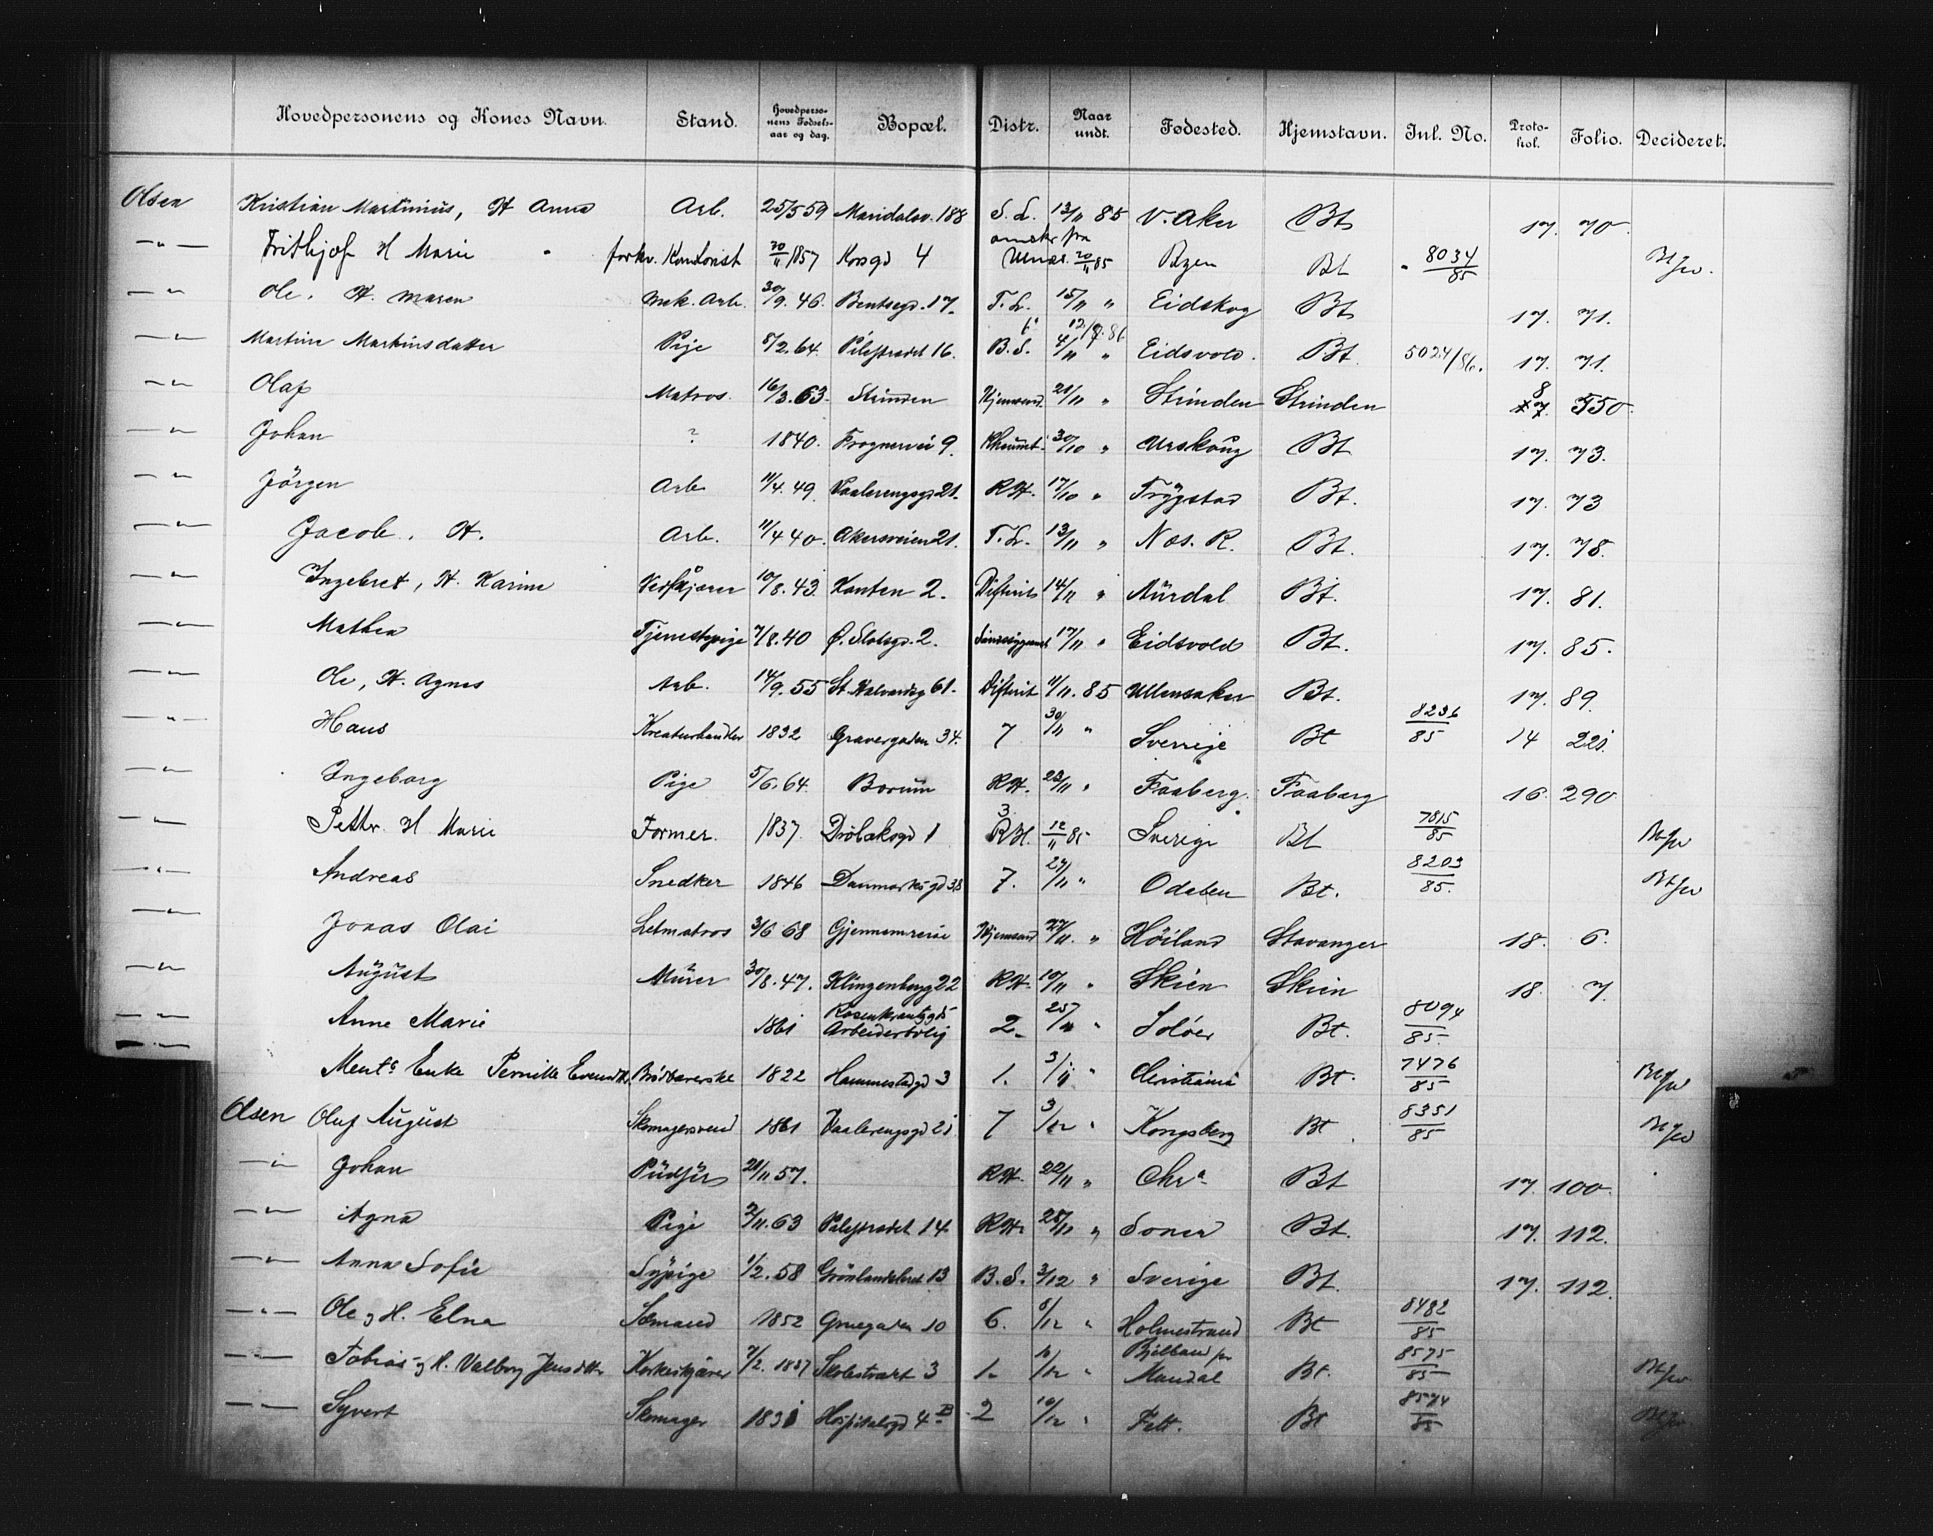 Hovedpersonens og Kones Navn. Stand. Hovedpersonens Fødselsaar og dag. Bopæl. Distr. Naar undt. Fødested. Hjemstavn. Inl. No. Protokol. Folio. Decideret.
Olsen Kristian Martinius, H Anna Arb. 25/5 59 Maridalsv. 188 S. L. 13/11 85 V. Aker Bt 17. 70.
— " — Frithjof H Marie forhv. Kontorist 20/11 1857 Korsgd 4 20/11 85 Bgen Bt 8034/85
— " — Ole, H. Maren Mek. Arb. 30/9. 46. Bentsegd. 17. T. L. 15/11 " Eidskog Bt 17. 71.
— " — Martine Martinsdatter Pige 8/2. 64. Pilestrædet 16. B. S. 4/11 " Eidsvold. Bt. 5024/86. 17. 71.
— " — Olaf Matros. 16/3. 63. Strinden Hjemsend. 21/11 " Strinden Strinden 8 550.
— " — Johan ? 1840. Frognervei 9. 30/10 " Urskoug Bt 17. 73.
— " — Jörgen Arb 11/4. 49. Vaalerengsgd 21. R.H. 17/10 " Trygstad Bt. 17. 73
— " — Jacob, H. Arb. 11/4 40. Akersveien 21. T. L. 13/11 " Næs. R. Bt. 17. 78.
— " — Ingebret, H. Karine Vedskjærer 10/8. 43. Kanten 2. Difterit 14/11 " Aurdal Bt. 17. 81.
— " — Mathea Tjenestepige 7/8. 40 Ø. Slotsgd. 2. 17/11 " Eidsvold Bt. 17. 85.
— " — Ole, H. Agnes Arb. 14/9. 55 St. Halvardsg 61. Difterit 11/11. 85 Ullensaker Bt. 17. 89.
— " — Hans Kreaturhandler 1832 Gravergaden 34. 7 30/11 " Sverige Bt 8236/85 14 221.
— " — Ingeborg Pige 5/6. 64. Bærum R.H. 23/11 " Faaberg. Faaberg 16. 290.
— " — Petter H Marie Former. 1837. Dröbaksgd 1 3 R.H. 12/11 85 Sverige Bt 7815/85
— " — Andreas Snedker 1846 Danmarksgd 38 7. 27/11 " Odalen Bt. 8203/85.
— " — Jonas Olai Letmatros 3/6 68 Gjennemreise Hjemsend 27/11. " Höiland Stavanger 18. 6.
— " — August Murer 30/8. 47. Klingenberg 22 R.H. 10/11 " Skien Skien 18. 7.
— " — Anne Marie 1861 Rosenkrantzgd Arbeiderbolig 2. 25/11 " Soløer Bt. 8094/85
— " — Enke Pernille Brödbærerske 1822 Hammerstadgd 3 1. 3/11 " Christiania Bt. 7476/85
Olsen Oluf August Skomagersvend 1861 Vaalerengsgd 21 7 3/12 " Kongsberg Bt 8351/85
— " — Johan 21/11 57. R.H. 22/11 " Chra Bt 17. 100.
— " — Agna Pige 2/11. 63 Pilestrædet 14. R.H. 25/11 " Bt. 17. 112.
— " — Anna Sofie Sypige 1/2. 58 Grönlandsleret 13 B. S. 3/12 " Sverige Bt. 17. 112.
— " — Ole & H. Elna Sömand 1852 Gruegaden 10 6. 8/12 " Holmestrand Bt 8482/85
— " — Tobias & H. Valborg Jensdtr Korkeskjærer 7/2. 1837 Skolestræt 3 1. 10/12 " Mandal Bt. 8575/85
— " — Syvert Skomager 1831 Hospitalsgd 4 B 2 10/12 " Fett. Bt 8574/85